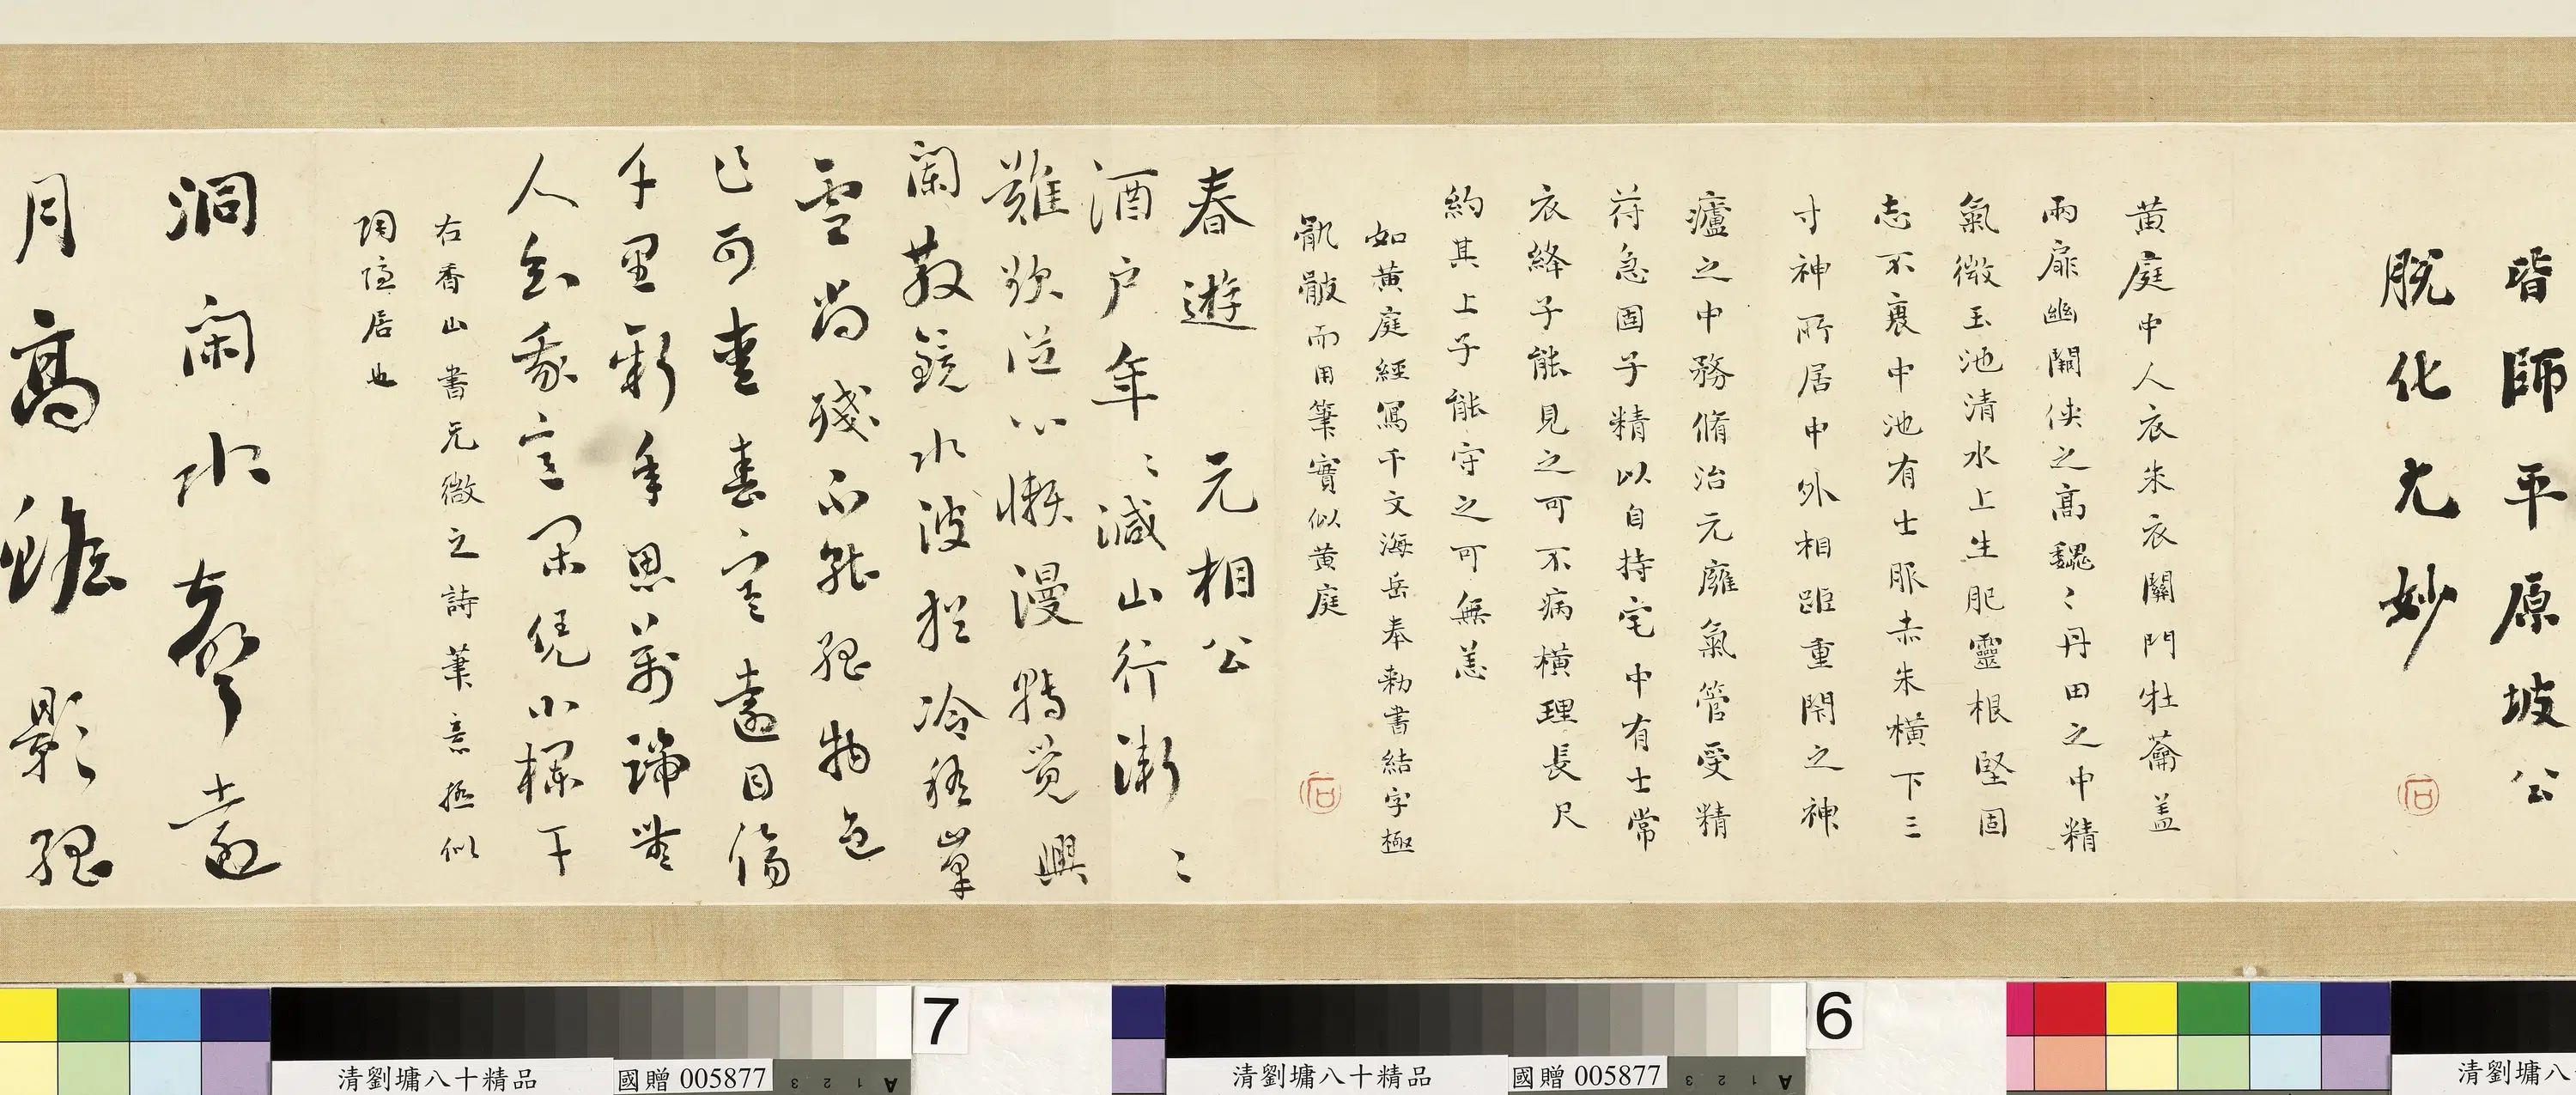 皆師平原坡公
脫化尤妙
石
黃庭中人衣朱衣關門牡蘥盖
兩扉幽闕俠之高魏〻丹田之中精
氣微玉池清水上生肥靈根堅固
志不衰中池有士服赤朱橫下三
寸神所居中外相距重閉之神
廬之中務脩治元廱氣管受精
苻急固子精以自持宅中有士常
衣絳子能見之可不病橫理長尺
約其上子能守之可無恙
如黃庭經寫千文海岳奉勑書結字極
骯髒而用筆實似黃庭
石
春遊 元相公
酒户年〻減山行漸〻
難欲從心懶漫轉覺興
闌散鏡水波猶冷稽峯
雪尚殘不能孤物色
乍可愛春寒遠目傷
千里新年思萬端無
人知我意閑凭小欄干
右香山書元微之詩筆意極似
陶隱居也
洞閑水聲遠
月高蟾影孤
7
6
清劉墉八十精品 國贈 005877
清劉墉八十精品 國贈 005877
清劉墉八